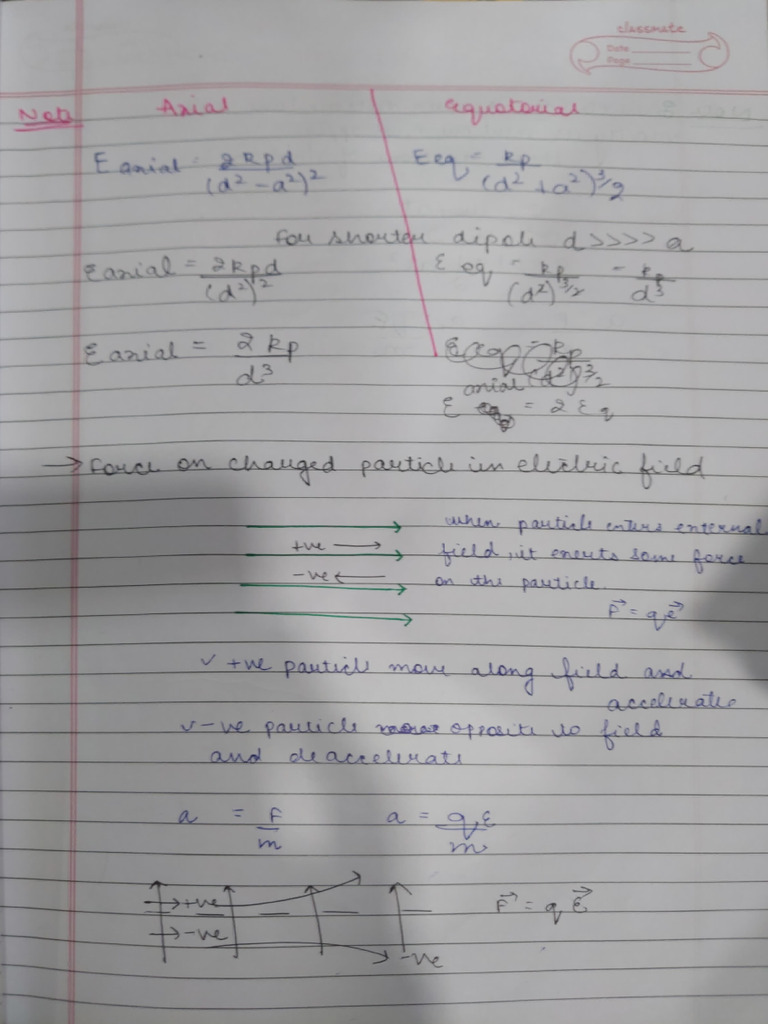 classmate
Date
Page
Note Axial Equatorial
E axial = 2kpd / (d² - a²)² E eq = kp / (d² + a²)^3/2
for shorter dipole d >>>> a
E axial = 2kpd / (d²)² E eq = kp / (d²)^3/2 = kp / d³
E axial = 2kp / d³
E axial = 2 Eq
→ Force on charged particle in electric field
when particle enters external
+ve → field, it exerts some force
-ve ← on the particle.
F⃗ = qE⃗
✓ +ve particle move along field and
accelerates
✓ -ve particle opposite to field
and deaccelerate
a = F / m a = qE / m
→ +ve F⃗ = q E⃗
→ -ve
-ve